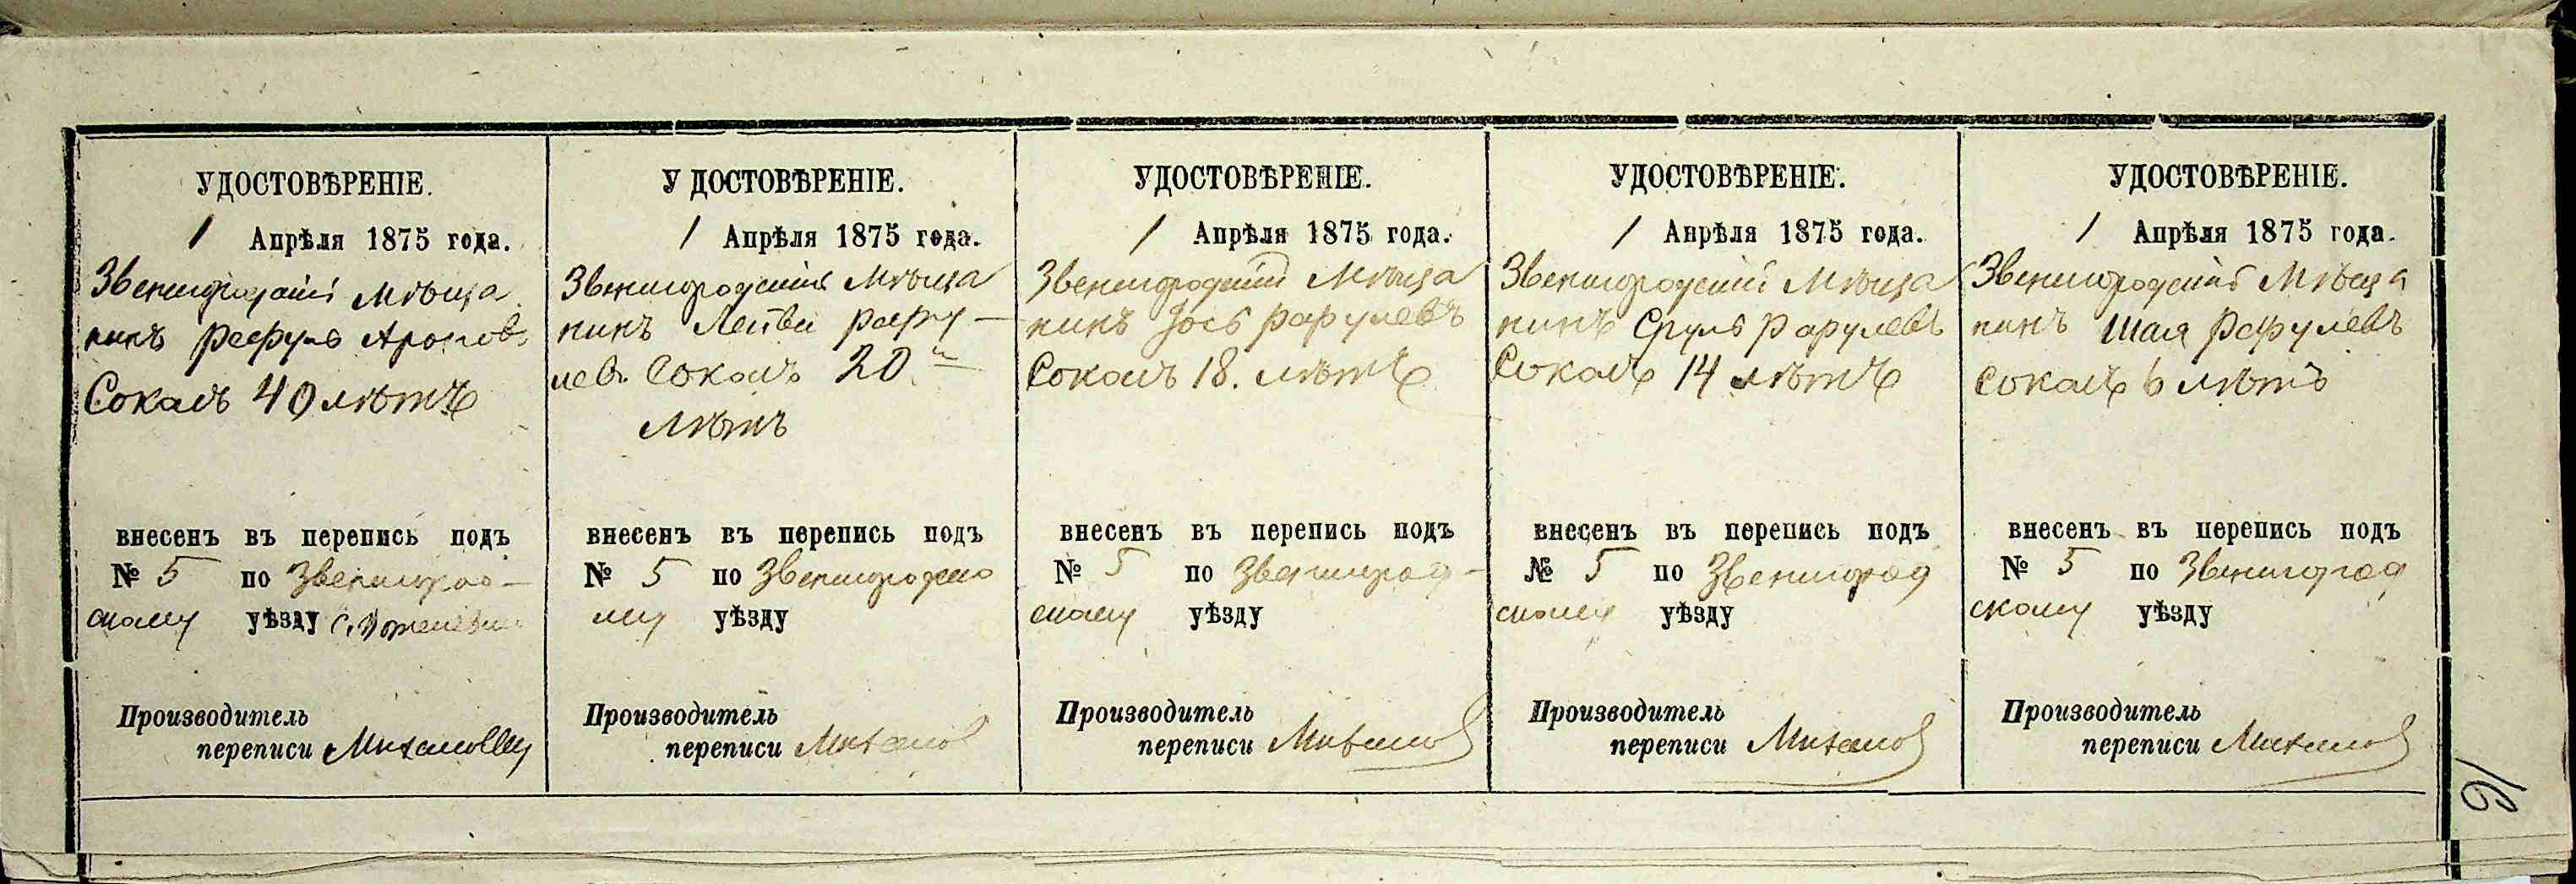 УДОСТОВѢРЕНІЕ.
1 Апрѣля 1875 года.
Звенигородскій Мѣща
нинъ Рафулъ Ароновъ
Сокалъ 40 лѣтъ
внесенъ въ перепись подъ
№ 5 по Звенигород-
скому уѣзду
Производитель
переписи
У ДОСТОВѢРЕНІЕ.
1 Апрѣля 1875 года.
Звенигородскій Мѣща
нинъ Лейба Рафу-
левъ Сокалъ 20
лѣтъ
внесенъ въ перепись подъ
№ 5 по Звенигородско
му уѣзду
Производитель
переписи
УДОСТОВѢРЕНІЕ.
1 Апрѣля 1875 года.
Звенигородскій Мѣща
нинъ Іось Рафулевъ
Сокалъ 18. лѣтъ
внесенъ въ перепись подъ
№ 5 по Звенигород-
скому уѣзду
Производитель
переписи
УДОСТОВѢРЕНІЕ.
1 Апрѣля 1875 года.
Звенигородскій Мѣща
нинъ Сруль Рафулевъ
Сокалъ 14 лѣтъ
внесенъ въ перепись подъ
№ 5 по Звенигород
скому уѣзду
Производитель
переписи
УДОСТОВѢРЕНІЕ.
1 Апрѣля 1875 года.
Звенигородскій Мѣща
нинъ Шая Рафулевъ
Сокалъ 6 лѣтъ
внесенъ въ перепись подъ
№ 5 по Звенигород
скому уѣзду
Производитель
переписи
16